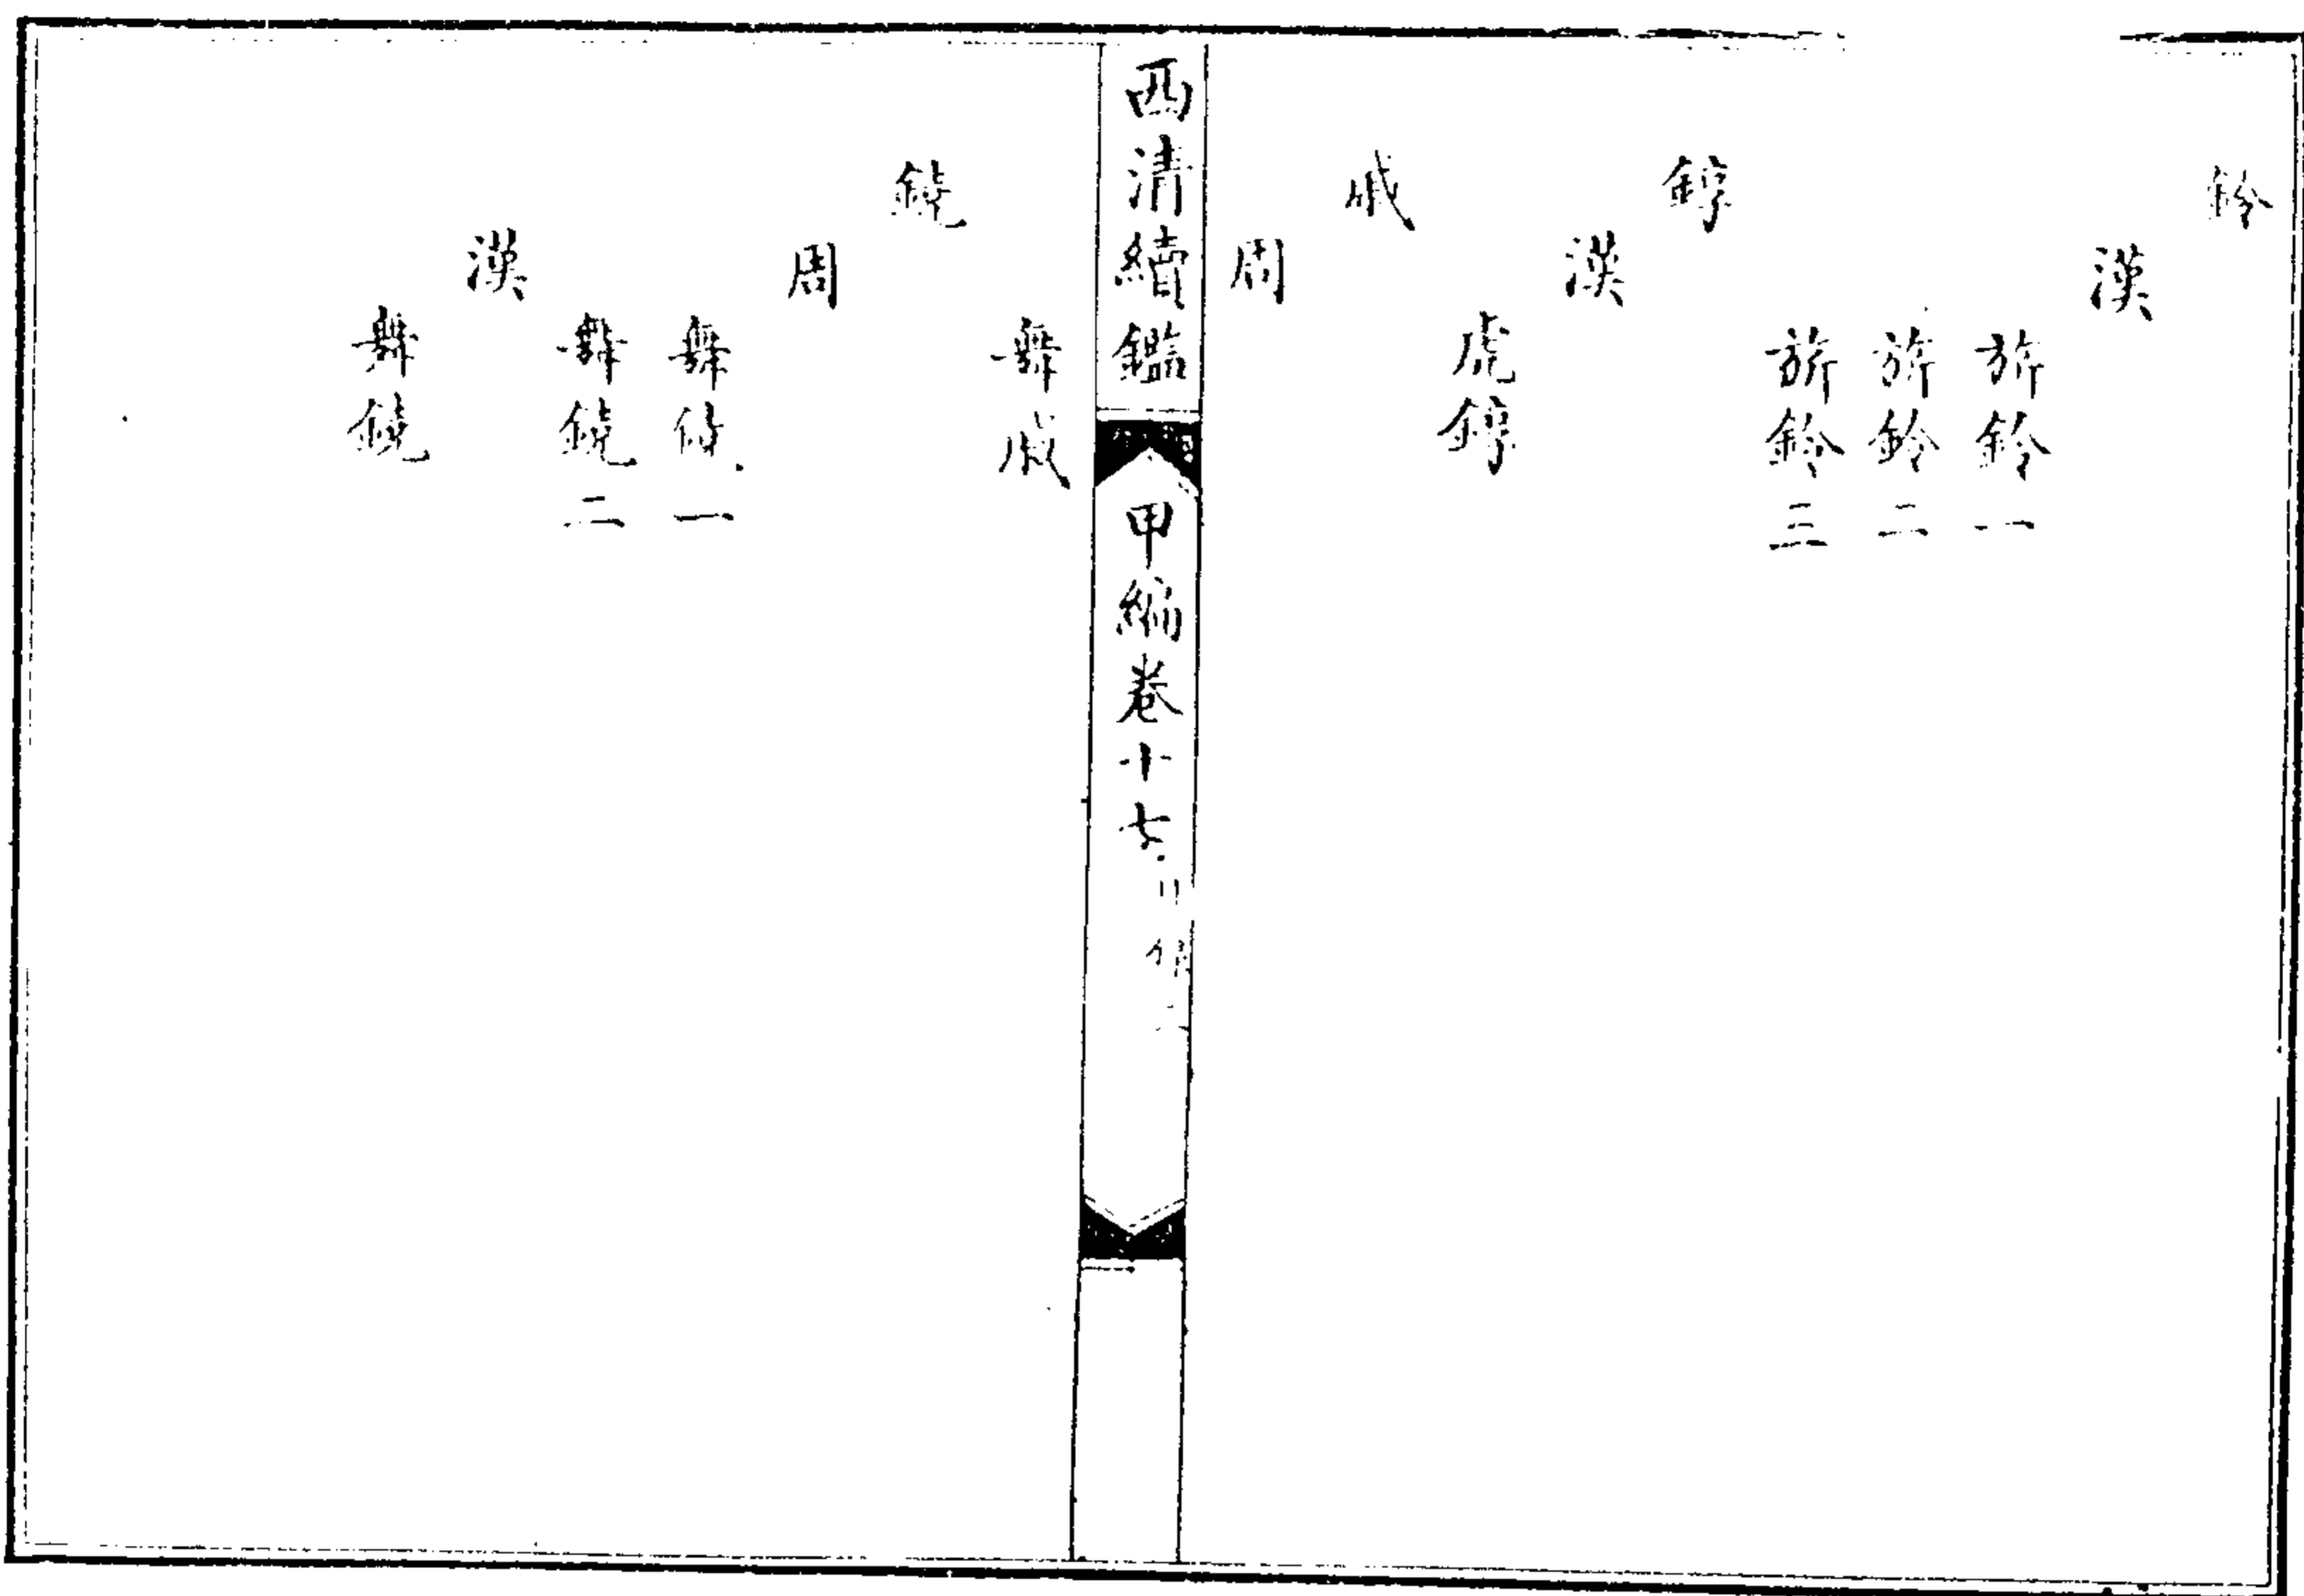 鈴
漢
旂鈴一
旂鈴二
旂鈴三
錞
漢
虎錞
戚
周
西清續鑑
甲編卷十七
舞戚
鐃
周
舞鐃一
舞鐃二
漢
舞鐃